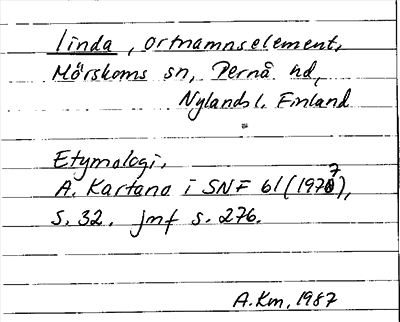 linda, ortnamnselement,
Mörskoms sn, Pernå hd,
Nylands l. Finland
Etymologi.
A. Kartano i SNF 61 (1977),
S. 32. jmf s. 276.
A.Km, 1987